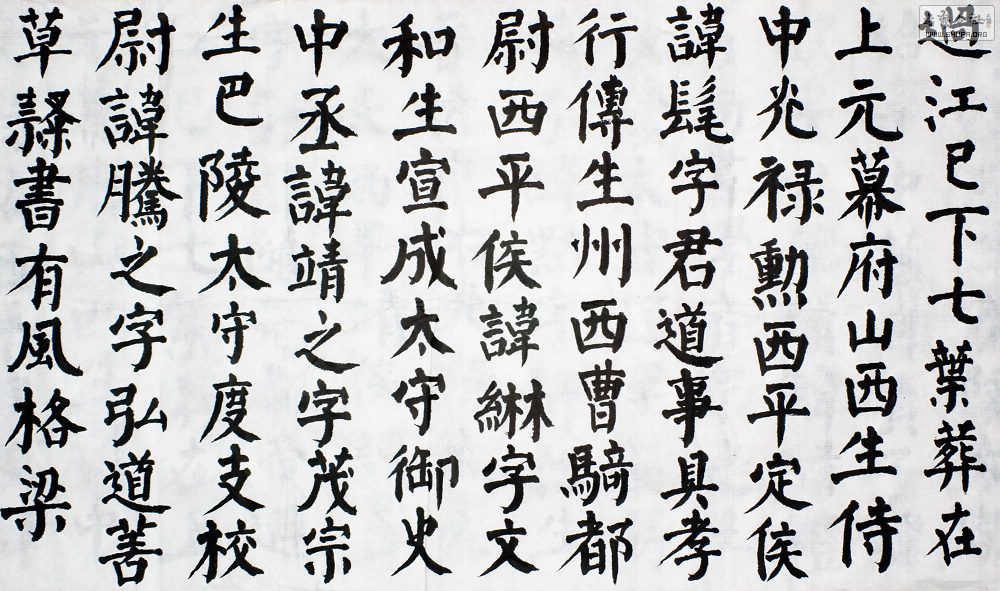 過江已下七葉葬在
上元幕府山西生侍
中光祿勳西平定侯
諱髦字君道事具孝
行傳生州西曹騎都
尉西平侯諱綝字文
和生宣成太守御史
中丞諱靖之字茂宗
生巴陵太守度支校
尉諱騰之字弘道善
草隸書有風格梁